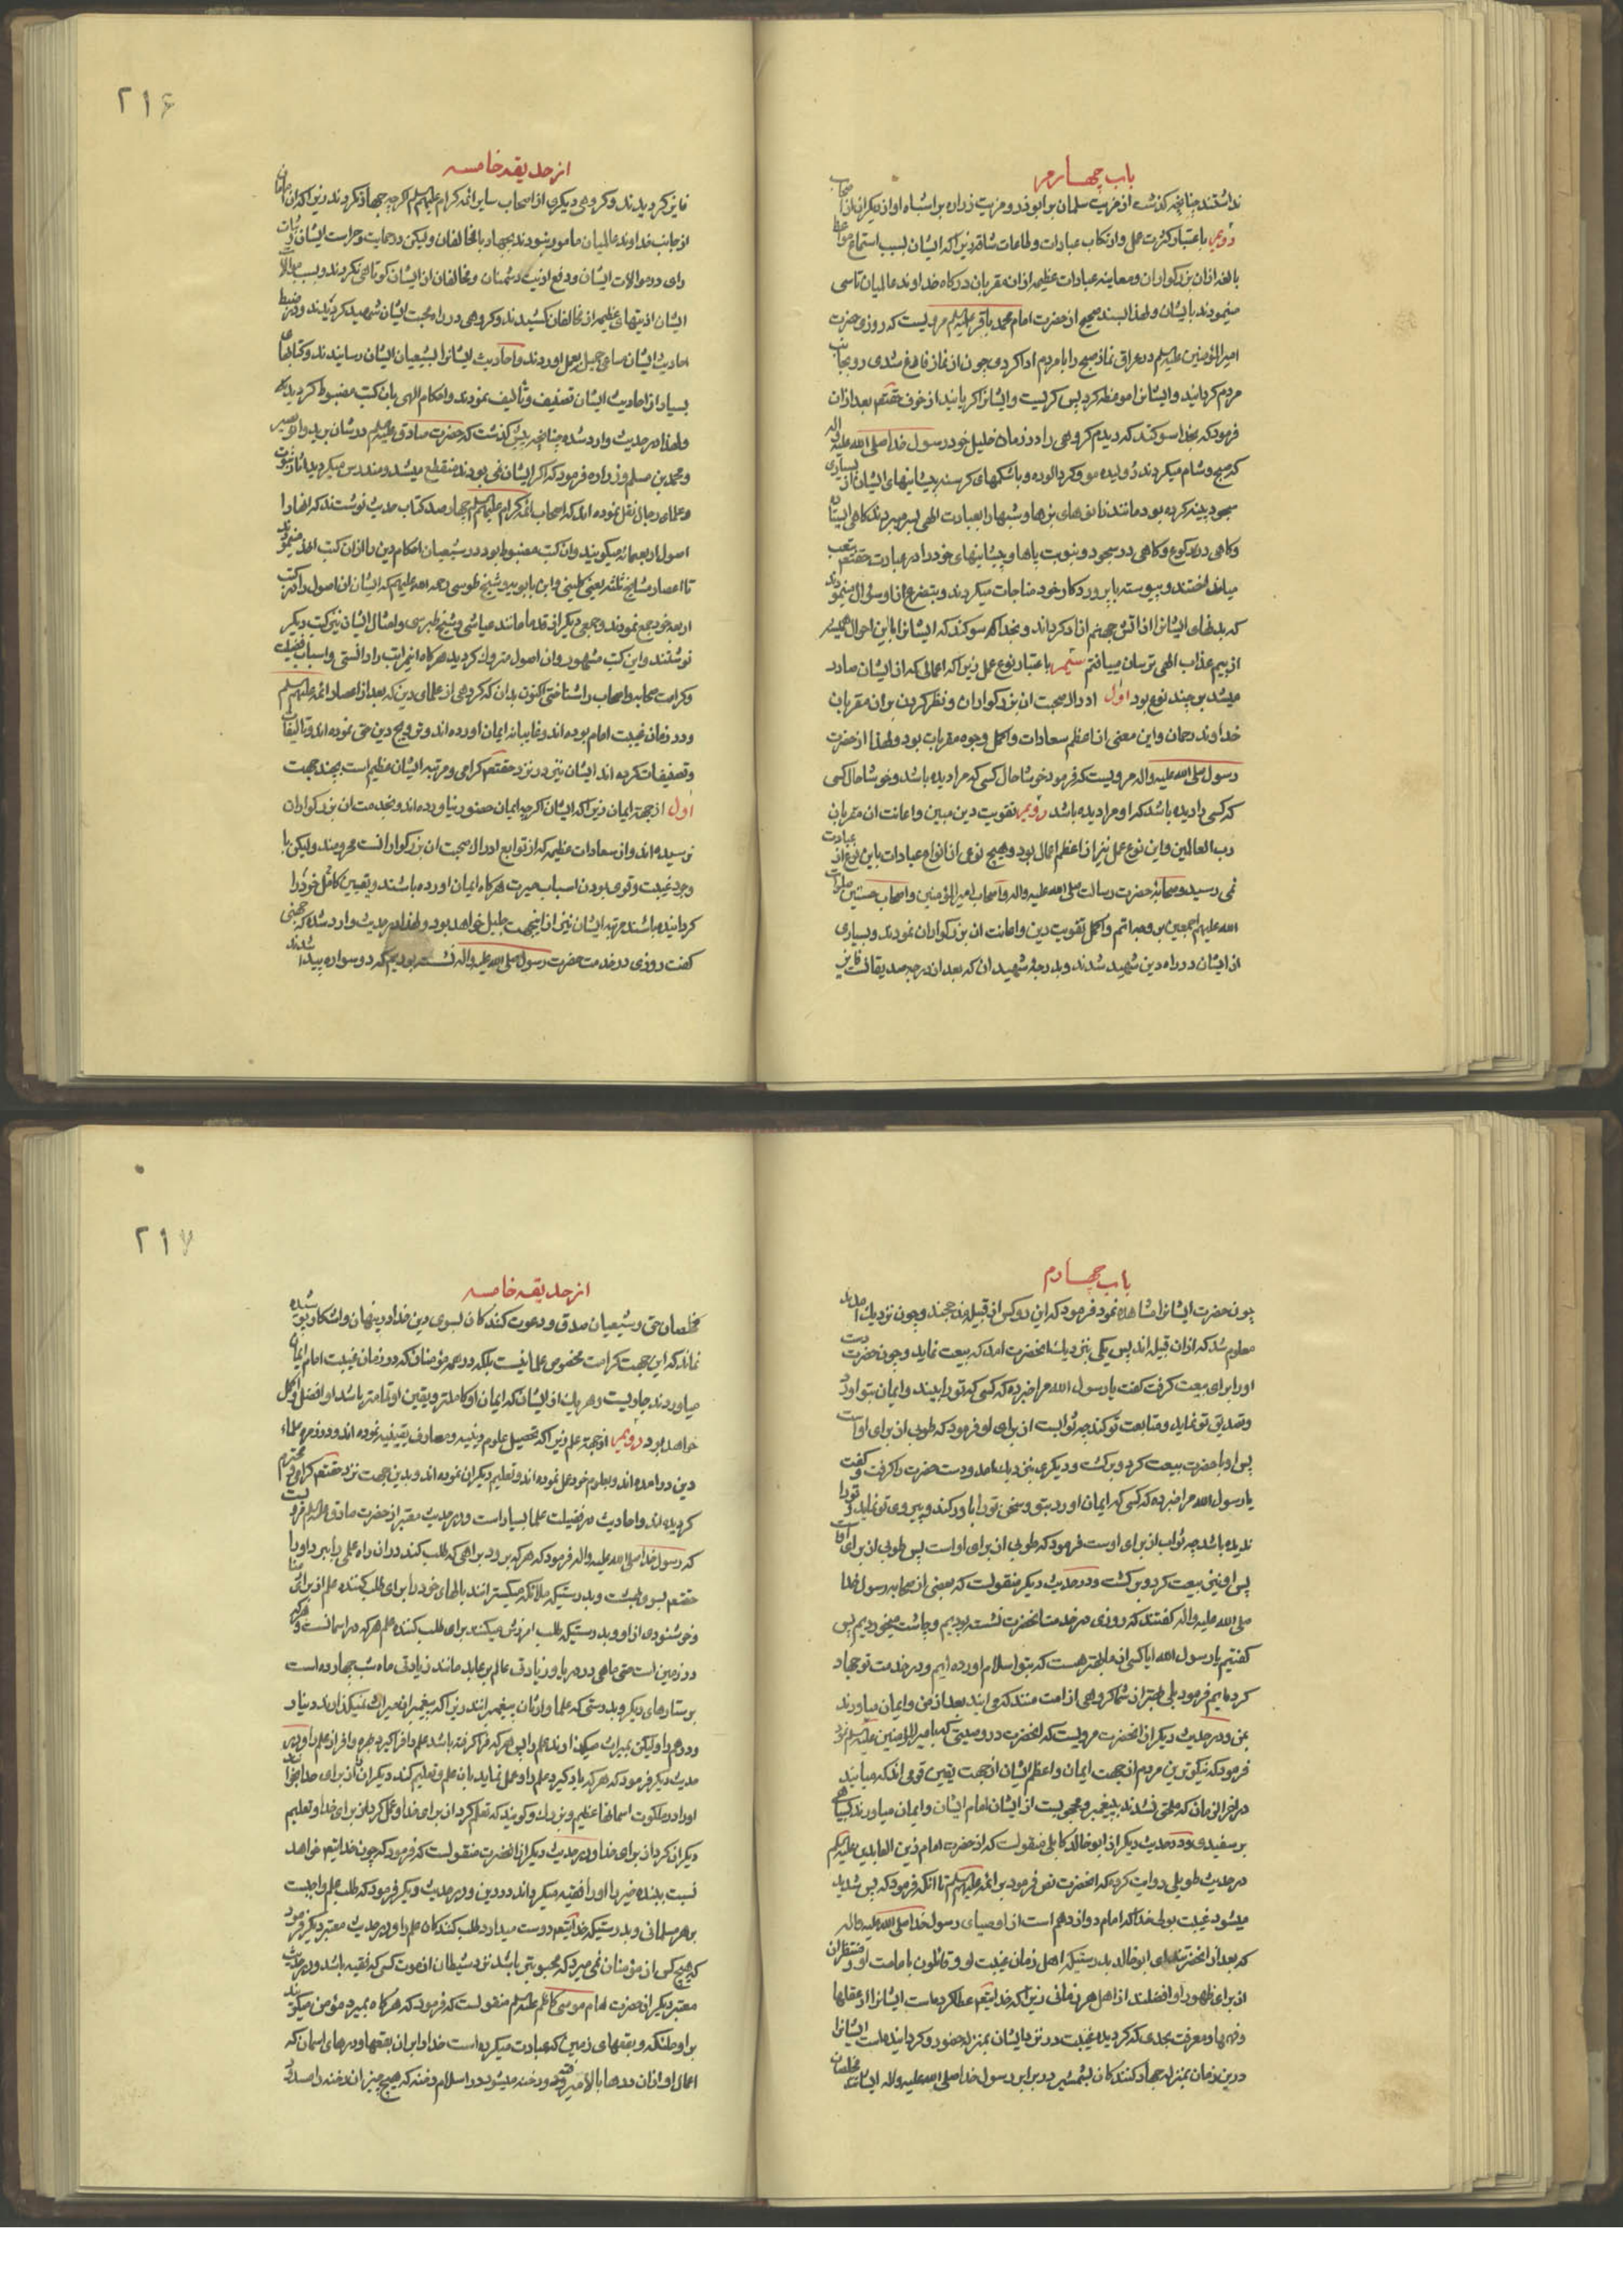 باب چهارم
نداشتند چنانچه گذشت از مزیت سلمان بر ابوذر و مزیت زراره بر اشباه او از دیگران از اصحاب
دویم باعتبار کثرت عمل و ارتکاب عبادات و طاعات شاقه زیرا که ایشان بسبب استماع مواعظ
بالغه از آن بزرکواران و معاینه عبادات عظیمه از آن مقربان درکاه خداوند عالمیان تاسی
مینمودند بایشان و لهذا بسند صحیح از حضرت امام محمد باقر علیه السلم مرویست که روزی حضرت
امیرالمؤمنین علیه السلم در عراق نماز صبح را با مردم ادا کردی چون از نماز فارغ شدی رو بجانب
مردم کردانید و ایشانرا موعظه کرد پس کریست و ایشانرا کریانید از خوف حقتعم بعد از ان
فرمود که بخدا سوکند که دیدم کروهی را در زمان خلیل خود رسول خدا صلی الله علیه واله
که صبح و شام میکردند ژولیده مو و کرد الوده و با شکمهای کرسنه پیشانیهای ایشان از بسیاری
سجود پینه کرده بود مانند زانوهای بزها و شبها را بعبادت الهی بسر میبردند کاهی ایستاده
و کاهی در رکوع و کاهی در سجود و بنوبت پاها و پیشانیهای خود را در عبادت حقتعم بتعب
میانداختند و پیوسته با پروردکار خود مناجات میکردند و بتضرع از او سؤال مینمودند
که بدنهای ایشانرا از اتش جهنم ازاد کرداند و بخدا که سوکند که ایشانرا با این احوال همیشه
از بیم عذاب الهی ترسان مییافتم سیم باعتبار نوع عمل زیرا که اعمالی که از ایشان صادر
میشد بر چند نوع بود اول ادراک صحبت ان بزرکواران و نظر کردن بر ان مقربان
خداوند رحمان و این معنی از اعظم سعادات و اکمل وجوه مقربات بود و لهذا از حضرت
رسول صلی الله علیه واله مرویست که فرمود خوشا حال کسی که مرا دیده باشد و خوشا حال کسی
که کسی را دیده باشد که او مرا دیده باشد دویم تقویت دین مبین و اعانت ان مقربان
رب العالمین و این نوع عمل نیز از اعظم اعمال بود و هیچ نوعی از انواع عبادات باین نوع از عبادت
نمی رسید و صحابه حضرت رسالت صلی الله علیه واله و اصحاب امیرالمؤمنین و اصحاب حسنین صلوات
الله علیهم اجمعین بر وجه اتم و اکمل تقویت دین و اعانت ان بزرکواران نمودند و بسیاری
از ایشان در راه دین شهید شدند و بدرجهٔ شهیدان که بعد از درجه صدیقانست فایز
۲۱۶
از حدیقه خامسه
فایز کردیدند و کروهی دیکر از اصحاب سایر ائمه کرام علیهم السلم اکرچه جهاد نکردند زیرا که ایشان
از جانب خداوند عالمیان مامور نبودند بجهاد با مخالفان و لیکن در حمایت و حراست ایشان و ثبات
رای در موالات ایشان و دفع اذیت دشمنان و مخالفان از ایشان کوتاهی نکردند و بسبب موالات
ایشان اذیتهای عظیم از مخالفان کشیدند و کروهی در راه محبت ایشان شهید کردیدند و در ضبط
احادیث ایشان مساعی جمیل بعمل اوردند و احادیث ایشانرا بشیعیان ایشان رسانیدند و کتابهای
بسیار از احادیث ایشان تصنیف و تألیف نمودند و احکام الهی بان کتب مضبوط کردیده
و لهذا در حدیث وارد شده چنانچه پیش گذشت که حضرت صادق علیه السلم در شان برید و ابو بصیر
و محمد بن مسلم و زراره فرمود که اکر ایشان نمی بودند منقطع میشد و مندرس میکردید اثار نبوت
و علمای رجال نقل نموده اند که اصحاب ائمه کرام علیهم السلم چهار صد کتاب حدیث نوشتند که انها را
اصول اربعمائه میکویند و ان کتب مضبوط بود و شیعیان احکام دین را از ان کتب اخذ مینمودند
تا اعصار مشایخ ثلثه یعنی کلینی و ابن بابویه و شیخ طوسی رحمة الله علیهم که ایشان ان اصول را در کتب
اربعه خود جمع نمودند و جمعی دیکر از قدما مانند عیاشی و شیخ طبرسی و امثال ایشان نیز کتب دیکر
نوشتند و این کتب مشهور و ان اصول متروک کردید هرکاه این مراتب را دانستی و اسباب فضیلت
و کرامت صحابه و اصحاب را شناختی اکنون بدان که کروهی از علمای دین که بعد از اعصار ائمه علیهم السلم
و در زمان غیبت امام بوده اند و غایبانه ایمان اورده اند و ترویج دین حق نموده اند و تالیفات
و تصنیفات کرده اند ایشان نیز در نزد حقتعم کرامی و مرتبه ایشان عظیم است بچند جهت
اول از جهة ایمان زیرا که ایشان اکرچه ایمان حضور نیاورده اند و بخدمت ان بزرکواران
نرسیده اند و از سعادات عظیمه که از توابع ادراک صحبت ان بزرکوارانست محرومند و لیکن با
وجود غیبت و قوی بودن اسباب حیرت هرکاه ایمان اورده باشند و یقین کامل خود را
کردانیده باشند مرتبه ایشان نیز از اینجهت جلیل خواهد بود و لهذا در حدیث وارد شده که جهنی
کفت روزی در خدمت حضرت رسول صلی الله علیه واله نشسته بودیم که دو سواره پیدا شدند
باب چهارم
چون حضرت ایشانرا مشاهده نمود فرمود که این دو کس از قبیله مذحجند و چون نزدیک امدند
معلوم شد که از ان قبیله اند پس یکی بنزدیک انحضرت امد که بیعت نماید و چون حضرت دست
او را برای بیعت کرفت کفت یا رسول الله مرا خبر ده که کسی که تو را ببیند و ایمان بتو اورد
و تصدیق تو نماید و متابعت تو کند چه ثوابست از برای او فرمود که طوبی از برای اوست
پس او با حضرت بیعت کرد و برکشت و دیکری بنزدیک امد و دست حضرت را کرفت و کفت
یا رسول الله مرا خبر ده که کسی که ایمان اورد بتو و سخن تو را باور کند و پیروی تو نماید و تو را
ندیده باشد چه ثواب از برای اوست فرمود که طوبی از برای او است پس طوبی از برای اوست
پس او نیز بیعت کرد و برکشت و در حدیث دیکر منقولست که بعضی از صحابه رسول خدا
صلی الله علیه واله کفتند که روزی در خدمت انحضرت نشسته بودیم و چاشت میخوردیم پس
کفتیم یا رسول الله ایا کسی از ما بهتر هست که بتو اسلام اورده ایم و در خدمت تو جهاد
کرده ایم فرمود بلی بهتر از شما کروهی از امت منند که می ایند بعد از من و ایمان میاورند
بمن و در حدیث دیکر از انحضرت مرویست که انحضرت در وصیتی که با میرالمؤمنین علیه السلم نمود
فرمود که نیکوترین مردم از جهت ایمان و اعظم ایشان از جهت یقین قومی اند که میایند
در اخرالزمان که ملحق نشدند به پیغمبر و محجوبست از ایشان امام ایشان و ایمان میاورند بسیاهی
بر سفیدی و در حدیث دیکر از ابو خالد کابلی منقولست که از حضرت امام زین العابدین علیه السلم
در حدیث طویلی روایت کرده که انحضرت نص فرمود بر ائمه علیهم السلم تا انکه فرمود که پس شدید
میشود غیبت بولی خدا که امام دوازدهم است از اوصیای رسول خدا صلی الله علیه واله
که بعد از انحضرتند ای ابو خالد بدرستیکه اهل زمان غیبت او و قائلون بامامت او و منتظران
از برای ظهور او افضلند از اهل هر زمانی زیرا که خدایتعم عطا کرده است ایشانرا از عقلها
و فهمها و معرفت بحدی که کردیده غیبت در نزد ایشان بمنزله حضور و کردانیده است ایشانرا
در ین زمان بمنزله جهاد کنندکان بشمشیر در برابر رسول خدا صلی الله علیه واله ایشانند مخلصان
۲۱۷
از حدیقه خامسه
مخلصان حق و شیعیان صدق و دعوت کنندکان بسوی دین خدا در پنهان و اشکار پوشیده
نماند که این جهت کرامت مخصوص علما نیست بلکه در همه مؤمنان که در زمان غیبت امام ایمان
میاورند جاریست و هر یک از ایشان که ایمان او کاملتر و یقین او تمامتر باشد او افضل و اکمل
خواهد بود دویم از جهة علم زیرا که تحصیل علوم دینیه و معارف یقینیه نموده اند و در زمره علماء
دین در امده اند و بعلوم خود عمل نموده اند و تعلیم دیکران نموده اند و بدین جهت نزد حقتعم کرامی و محترم
کردیده اند و احادیث در فضیلت علما بسیار است و در حدیث معتبر از حضرت صادق علیه السلم مرویست
که رسول خدا صلی الله علیه واله فرمود که هر که برود براهی که طلب کند در ان راه علمی را ببرد او را
حقتعم بسوی بهشت و بدرستیکه ملائکه میکسترانند بالهای خود را برای طلب کننده علم از برای رضا
و خوشنودی از او و بدرستیکه طلب امرزش میکنند برای طلب کننده علم هر که در اسمانست و هر که
در زمین است حتی ماهی در دریا و زیادتی عالم بر عابد مانند زیادتی ماه شب چهارده است
بر ستارهای دیکر و بدرستی که علما وارثان پیغمبرانند زیرا که پیغمبران میراث نمیکذارند دینار
و درهم را و لیکن بمیراث میکذارند علم را پس هر که فرا کرفته باشد علم را فرا کیرد بهره وافر از علم را و در
حدیث دیکر فرمود که هر که یاد کیرد علم را و عمل نماید بان علم و تعلیم کند دیکران را از برای خدا بخوانند
او را در ملکوت اسمانها عظیم و بزرک و کویند که تعلم کرد از برای خدا و عمل کرد از برای خدا و تعلیم
دیکران کرد از برای خدا و در حدیث دیکر از انحضرت منقولست که فرمود که چون خدایتعم خواهد
نسبت ببنده خیر را او را فقیه میکرداند در دین و در حدیث دیکر فرمود که طلب علم واجبست
بر هر مسلمانی و بدرستیکه خدایتعم دوست میدارد طلب کنندکان علم را و در حدیث معتبر دیکر فرمود
که هیچ کس از مؤمنان نمی میرد که محبوبتر باشد نزد شیطان از موت کسی که فقیه باشد و در حدیث
معتبر دیکر از حضرت امام موسی کاظم علیه السلم منقولست که فرمود که هرکاه بمیرد مؤمن میکریند
بر او ملئکه و بقعهای زمین که عبادت میکرده است خدا را بر ان بقعها و درهای اسمان که
اعمال او از ان درها بالا میرفته و رخنه میشود در اسلام رخنه که هیچ چیز ان رخنه را مسدود